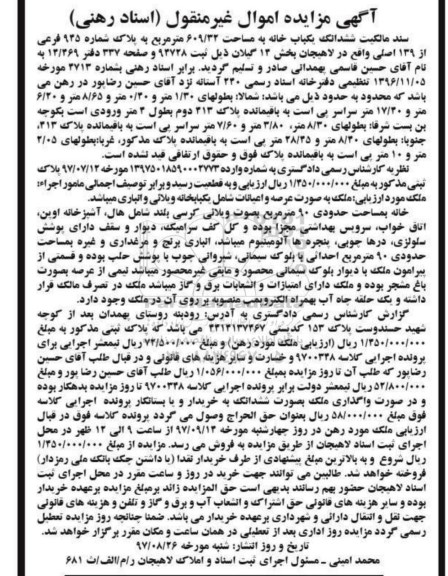 آگهی مزایده اموال غیرمنقول (اسناد رهنی)
سند مالکیت ششدانگ یکباب خانه به مساحت ۶۰۹/۳۲ مترمربع به پلاک شماره ۹۳۵ فرعی
از ۱۳۹ اصلی واقع در لاهیجان بخش ۱۴ گیلان ذیل ثبت ۹۴۷۲۸ و صفحه ۳۳۷ دفتر ۱۲/۴۶۹ به
نام آقای حسین قاسمی بهمدانی صادر و تسلیم گردید. برابر اسناد رهنی بشماره ۳۷۱۳ مورخه
۱۳۹۶/۱۱/۰۵ تنظیمی دفترخانه اسناد رسمی ۲۳۰ آستانه نزد آقای حسین رضاپور در رهن می
باشد که محدود به حدود ذیل می باشد: شمالا: بطولهای ۱/۳۰ متر و ۰/۴۰ متر و ۸/۶۵ متر و ۶/۲۰
متر و ۱۷/۲۰ متر سراسر پی است به باقیمانده پلاک ۴۱۳ دوم بطول ۴ متر ورودی است بکوچه
بن بست شرقا: بطولهای ۸/۳۰ متر، ۳/۸۰ متر و ۷/۶۰ متر سراسر پی است به باقیمانده پلاک ۴۱۳،
جنوبا: بطولهای ۸/۴۰ متر و ۲۸/۴۵ متر پی است به باقیمانده پلاک مذکور، غربا:بطولهای ۲/۰۵
متر و ۱۰ متر پی است به باقیمانده پلاک فوق و حقوق ارتفاقی قید نشده است.
نظریه کارشناس رسمی دادگستری به شماره وارده ۱۳۹۷۵۰۱۸۵۹۰۰۰۲۷۷۳ مورخه ۹۷/۰۷/۱۲ پلاک
ثبتی مذکور به مبلغ ۱/۴۵۰/۰۰۰/۰۰۰ ریال ارزیابی و به قطعیت رسید و برابر توصیف اجمالی مامور اجراء:
ملک مورد ارزیابی: ملک به صورت عرصه و اعیانات شامل یکبابخانه ویلائی و انباری میباشد.
خانه بمساحت حدودی ۹۰ مترمربع بصوت ویلائی کرسی بلند شامل هال، آشپزخانه اوپن،
اتاق خواب، سرویس بهداشتی مجزا بوده و کل کف سرامیک، دیوار و سقف دارای پوشش
سلولزی، درها چوبی، پنجره ها آلومینیوم میباشد، انباری برنج و مرغداری و غیره بمساحت
حدودی ۹۰ مترمربع احداثی با بلوک سیمانی، شیروانی چوب با پوشش حلب بوده و قسمتی از
پیرامون ملک با دیوار بلوک سیمانی محصور و مابقی غیرمحصور میباشد نیمی از عرصه بصورت
باغ مشجر بوده و ملک دارای امتیازات و انشعابات برق و گاز میباشد ملک در تصرف مالک قرار
داشته و یک حلقه چاه آب بهمراه الکتروپمپ منصوبه بر روی آن در ملک وجود دارد.
گزارش کارشناس رسمی دادگستری به آدرس: رودبنه روستای بهمدان بعد از کوچه
شهید حسندوست پلاک ۱۵۳ کدپستی ۴۴۱۴۱۳۷۴۶۷ می باشد که پلاک ثبتی مذکور به مبلغ
۱/۴۵۰/۰۰۰/۰۰۰ ریال (ارزیابی ملک مورد رهن) و مبلغ ۷۲/۵۰۰/۰۰۰ ریال نیمعشر اجرایی برای
پرونده اجرایی کلاسه ۹۷۰۰۳۴۸ و خسارت و سایر هزینه های قانونی و در قبال طلب آقای حسین
رضاپور که طلب آن تا روز مزایده بمبلغ ۱/۰۵۶/۰۰۰/۰۰۰ ریال طلب آقای حسین رضا پور و مبلغ
۵۲/۸۰۰/۰۰۰ ریال نیمعشر دولت برابر پرونده اجرایی کلاسه ۹۷۰۰۳۴۸ تا روز مزایده بدهکار بوده
و در صورت واگذاری ملک بصورت ششدانگ به خریدار و یا بستانکار پرونده اجرایی کلاسه
فوق مبلغ ۵۸/۰۰۰/۰۰۰ ریال بعنوان حق الحراج وصول می گردد پرونده کلاسه فوق در قبال
ارزیابی ملک مورد رهن در روز چهارشنبه مورخه ۹۷/۰۹/۱۴ از ساعت ۹ الی ۱۲ ظهر در محل
اجرای ثبت اسناد لاهیجان از طریق مزایده به فروش می رسد. مزایده از مبلغ ۱/۴۵۰/۰۰۰/۰۰۰
ریال شروع و به بالاترین مبلغ پیشنهادی از طرف خریدار نقدا (با داشتن چک بانک ملی رمزدار)
فروخته خواهد شد. طالبین می توانند جهت خرید در روز و ساعت مقرر در محل اجرای ثبت
اسناد لاهیجان حضور بهم رسانند بدیهی است حق المزایده زائد برمبلغ مزایده برعهده خریدار
بوده و سایر هزینه های قانونی حق اشتراک و انشعاب آب و برق و گاز و تلفن و هزینه های قانونی
جهت نقل و انتقال دارائی و شهرداری برعهده خریدار می باشد. ضمنا چنانچه روز مزایده تعطیل
رسمی گردد مزایده روز اداری بعد از تعطیلی در همان ساعت و مکان مقرر برگزار خواهد شد.
تاریخ و روز انتشار: شنبه مورخه ۹۷/۰۸/۲۶
محمد امینی – مسئول اجرای ثبت اسناد و املاک لاهیجان ر/م/الف/ث ۶۸۱